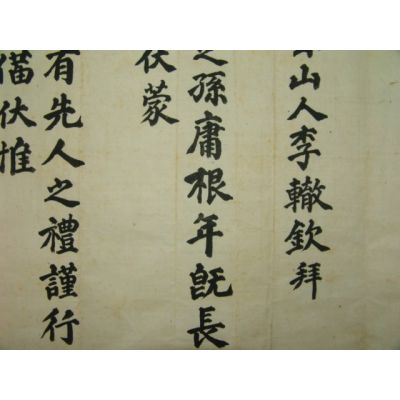 山人李轍欽拜
之孫庸根年旣長
伏蒙
有先人之禮謹行
偹伏惟